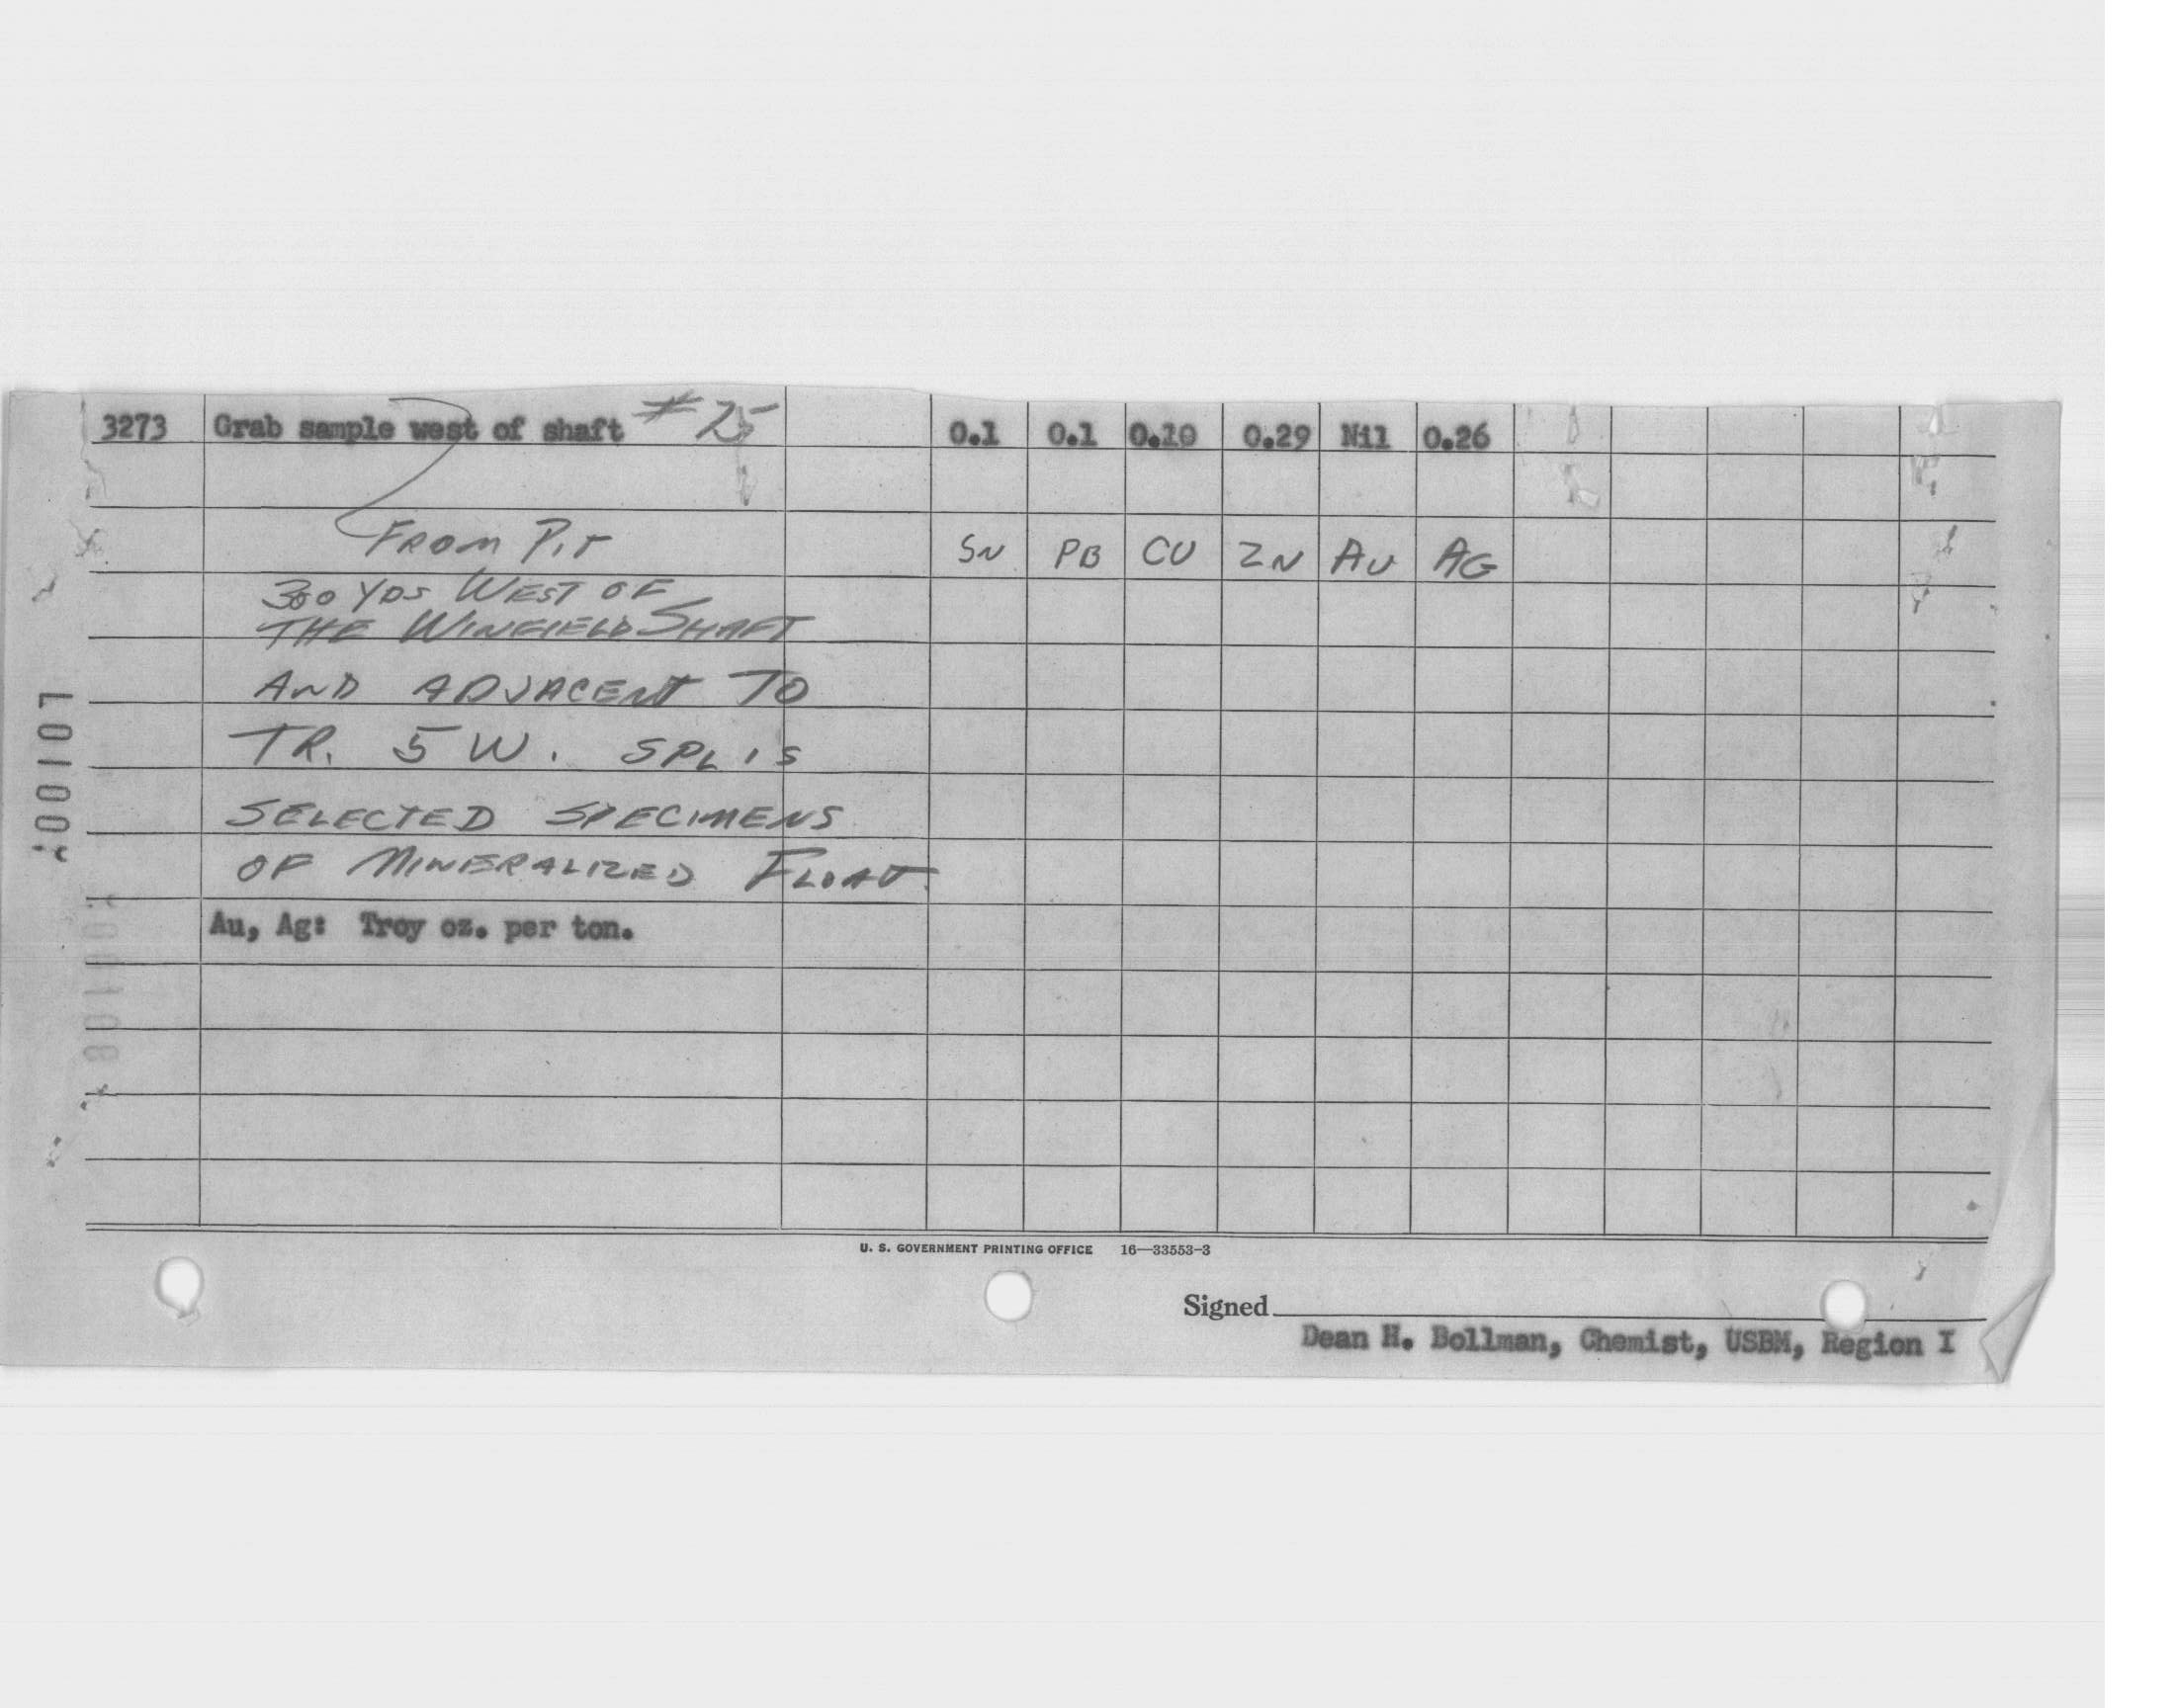 3273 Grab sample west of shaft #25 0.1 0.1 0.10 0.29 Nil 0.26
FROM PIT SN PB CU ZN AU AG
300 YDS WEST OF
THE WINFIELD SHAFT
AND ADJACENT TO
TR. 5 W. SPL IS
SELECTED SPECIMENS
OF MINERALIZED FLOAT
Au, Ag: Troy oz. per ton.
U. S. GOVERNMENT PRINTING OFFICE 16—33553-3
Signed
Dean H. Bollman, Chemist, USBM, Region I